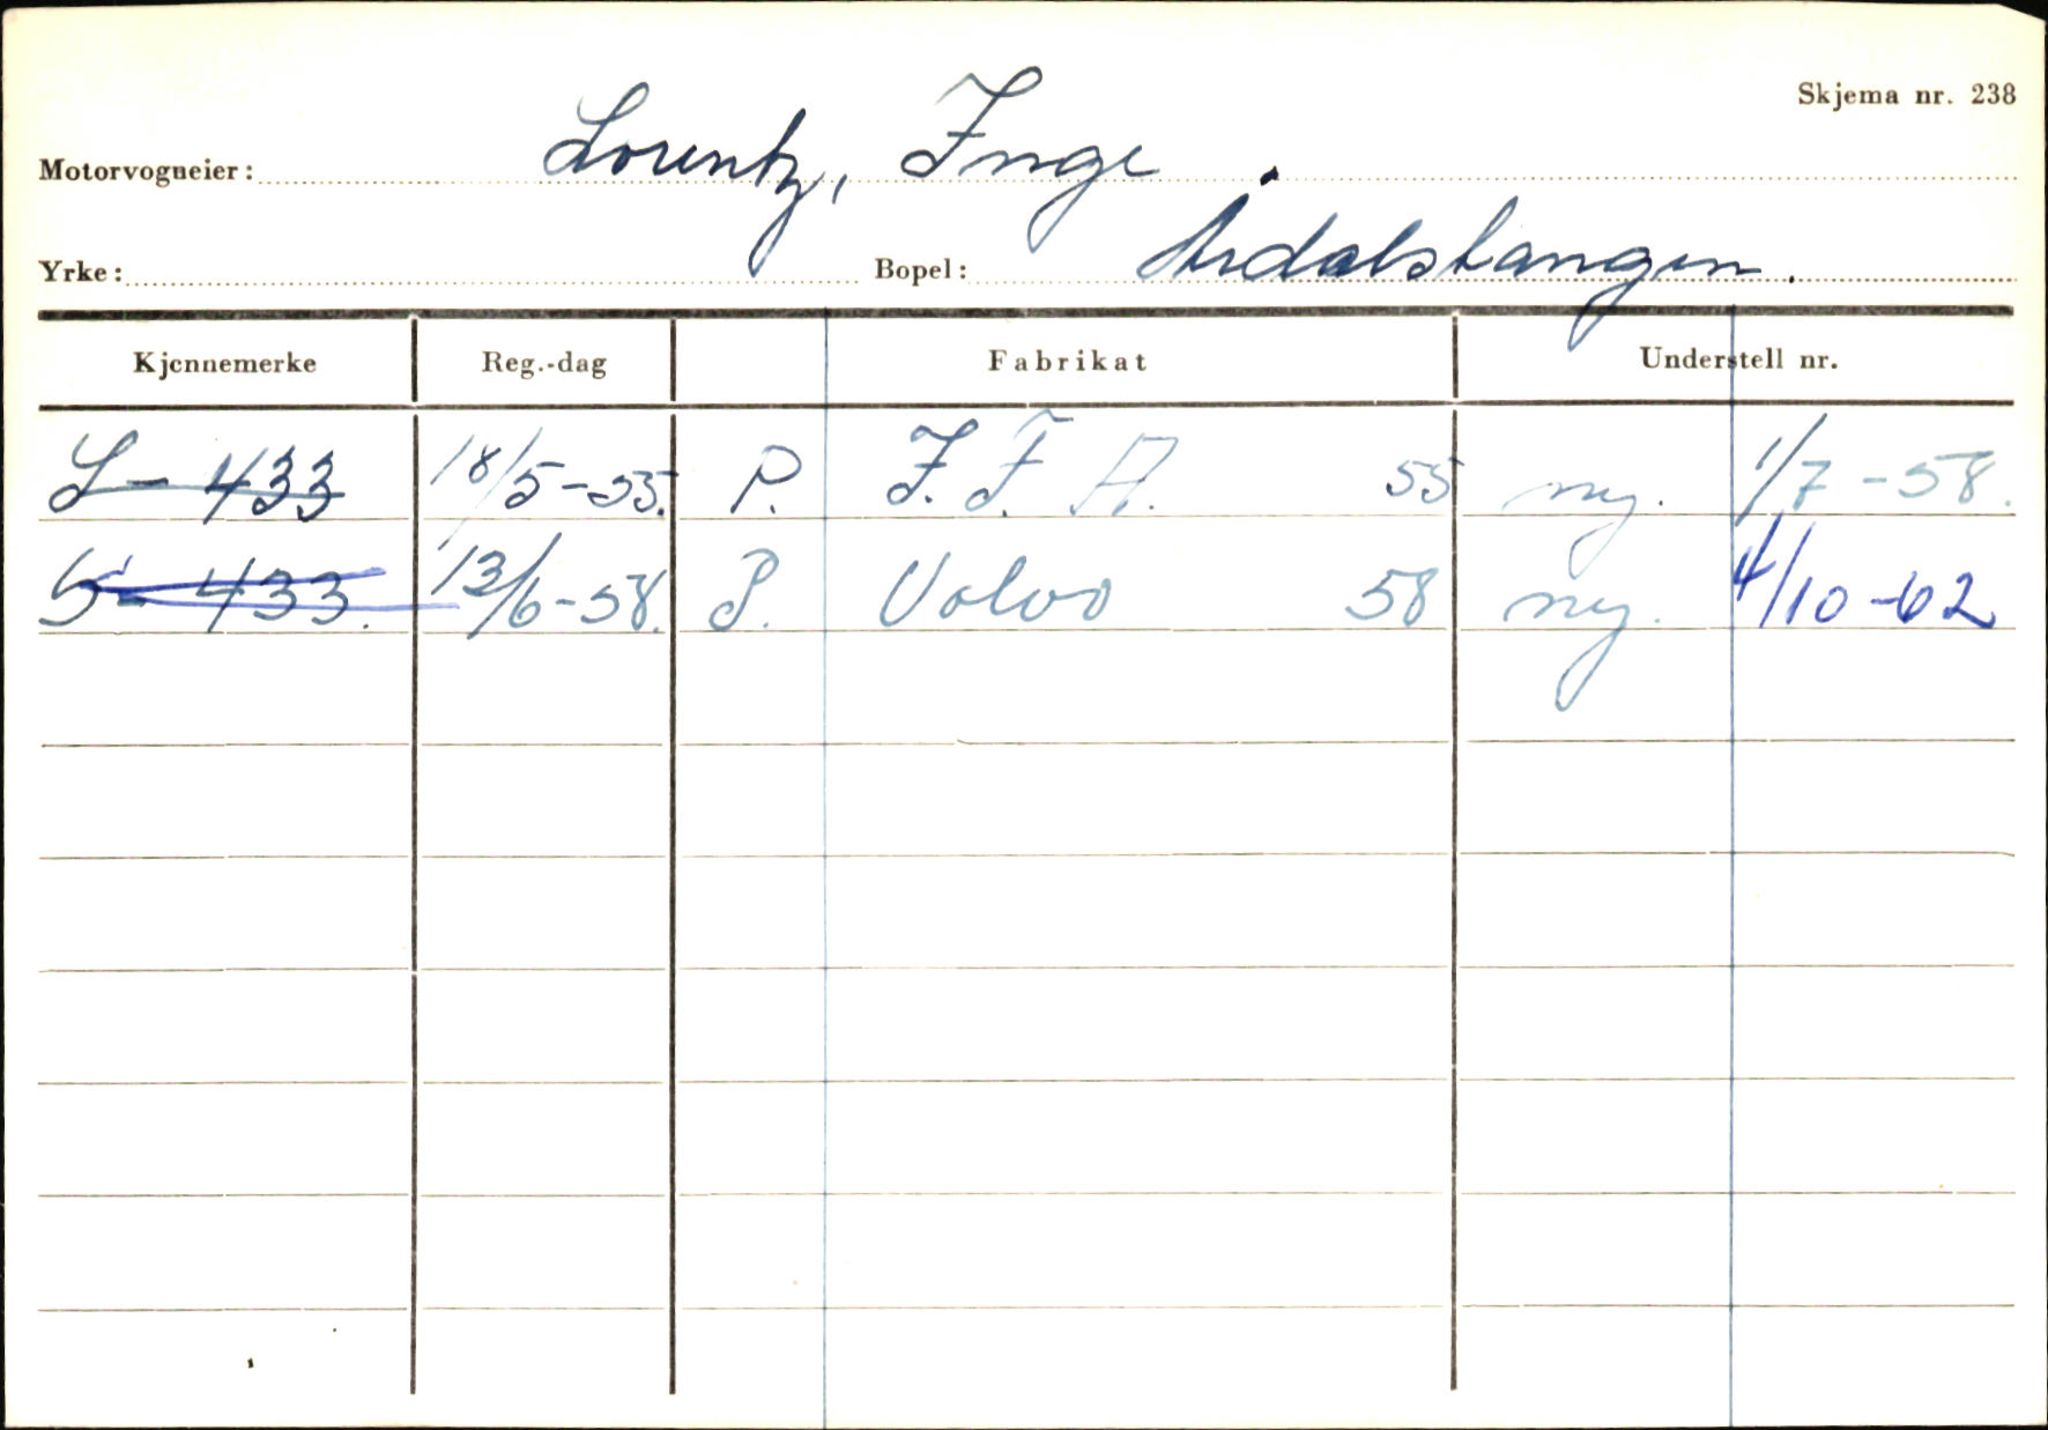 Skjema nr. 238
Motorvogneier: Lorentz, Inge.
Yrke: Bopel: Årdalstangen.
Kjennemerke Reg.-dag Fabrikat Understell nr.
S - 433 18/5-55. P. I. F. A. 55 ny. 1/7-58.
S - 433. 13/6-58. P. Volvo 58 ny. 4/10-62